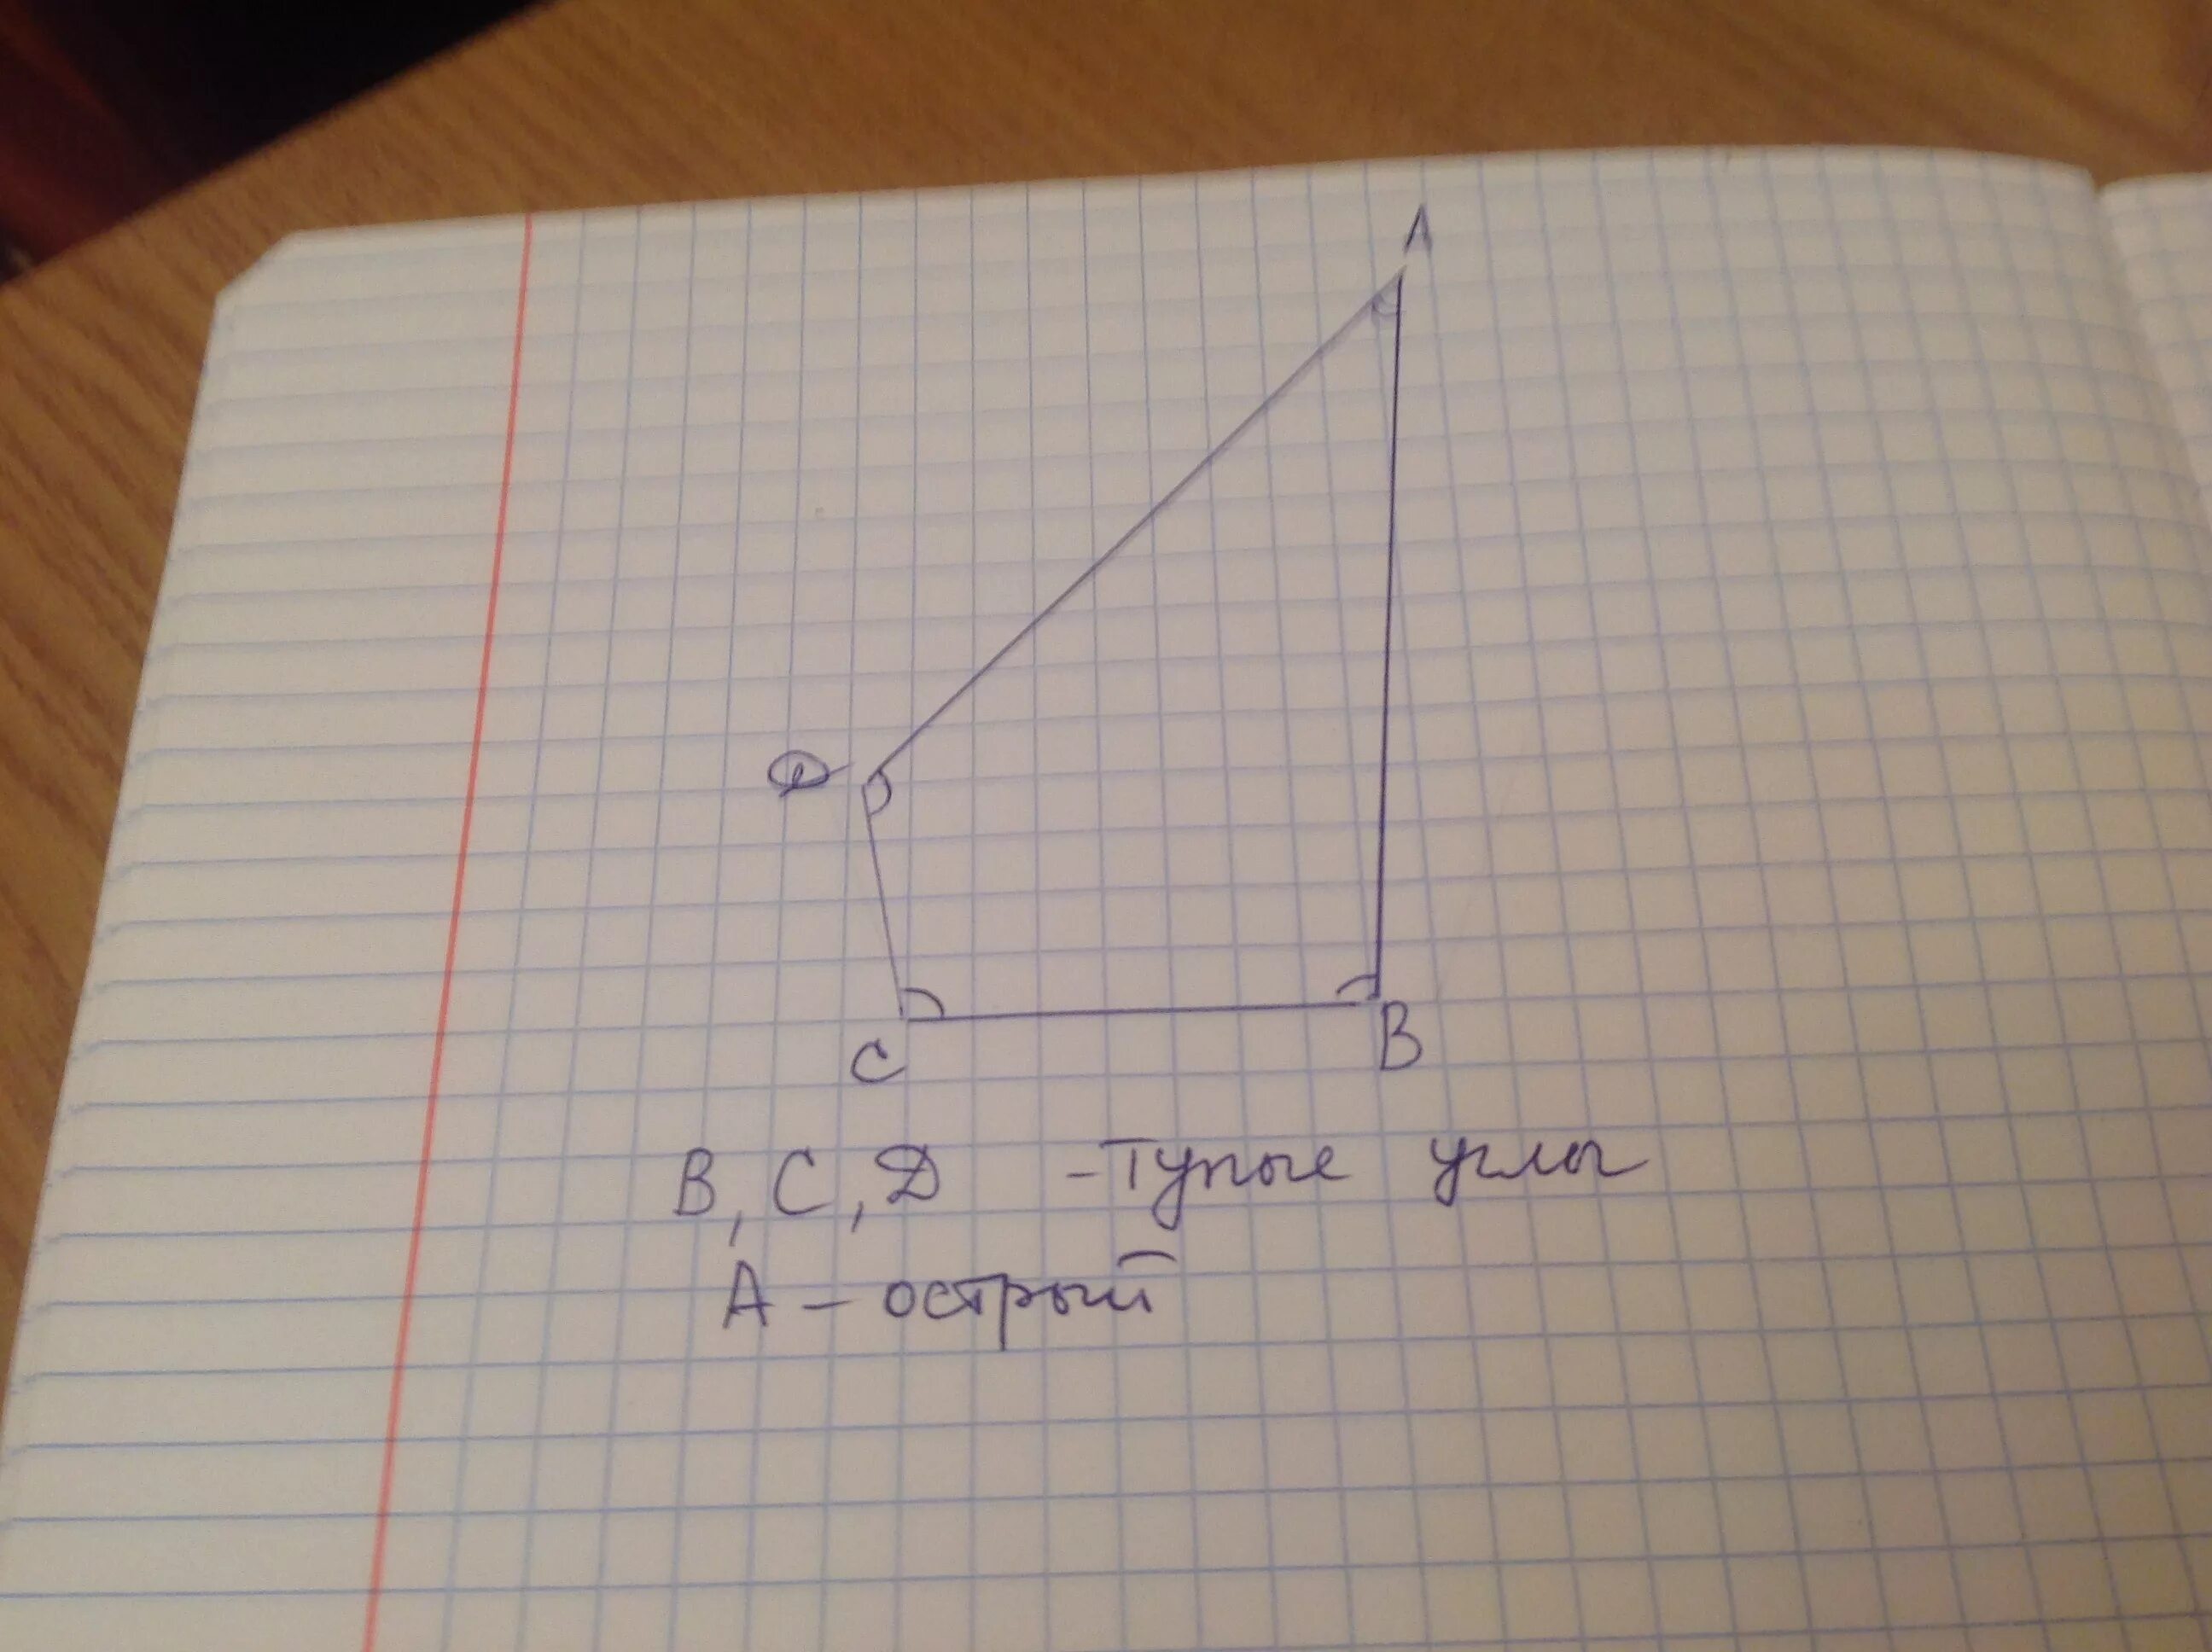 A
D
C
B
B, C, D - Тупые углы
A - острый